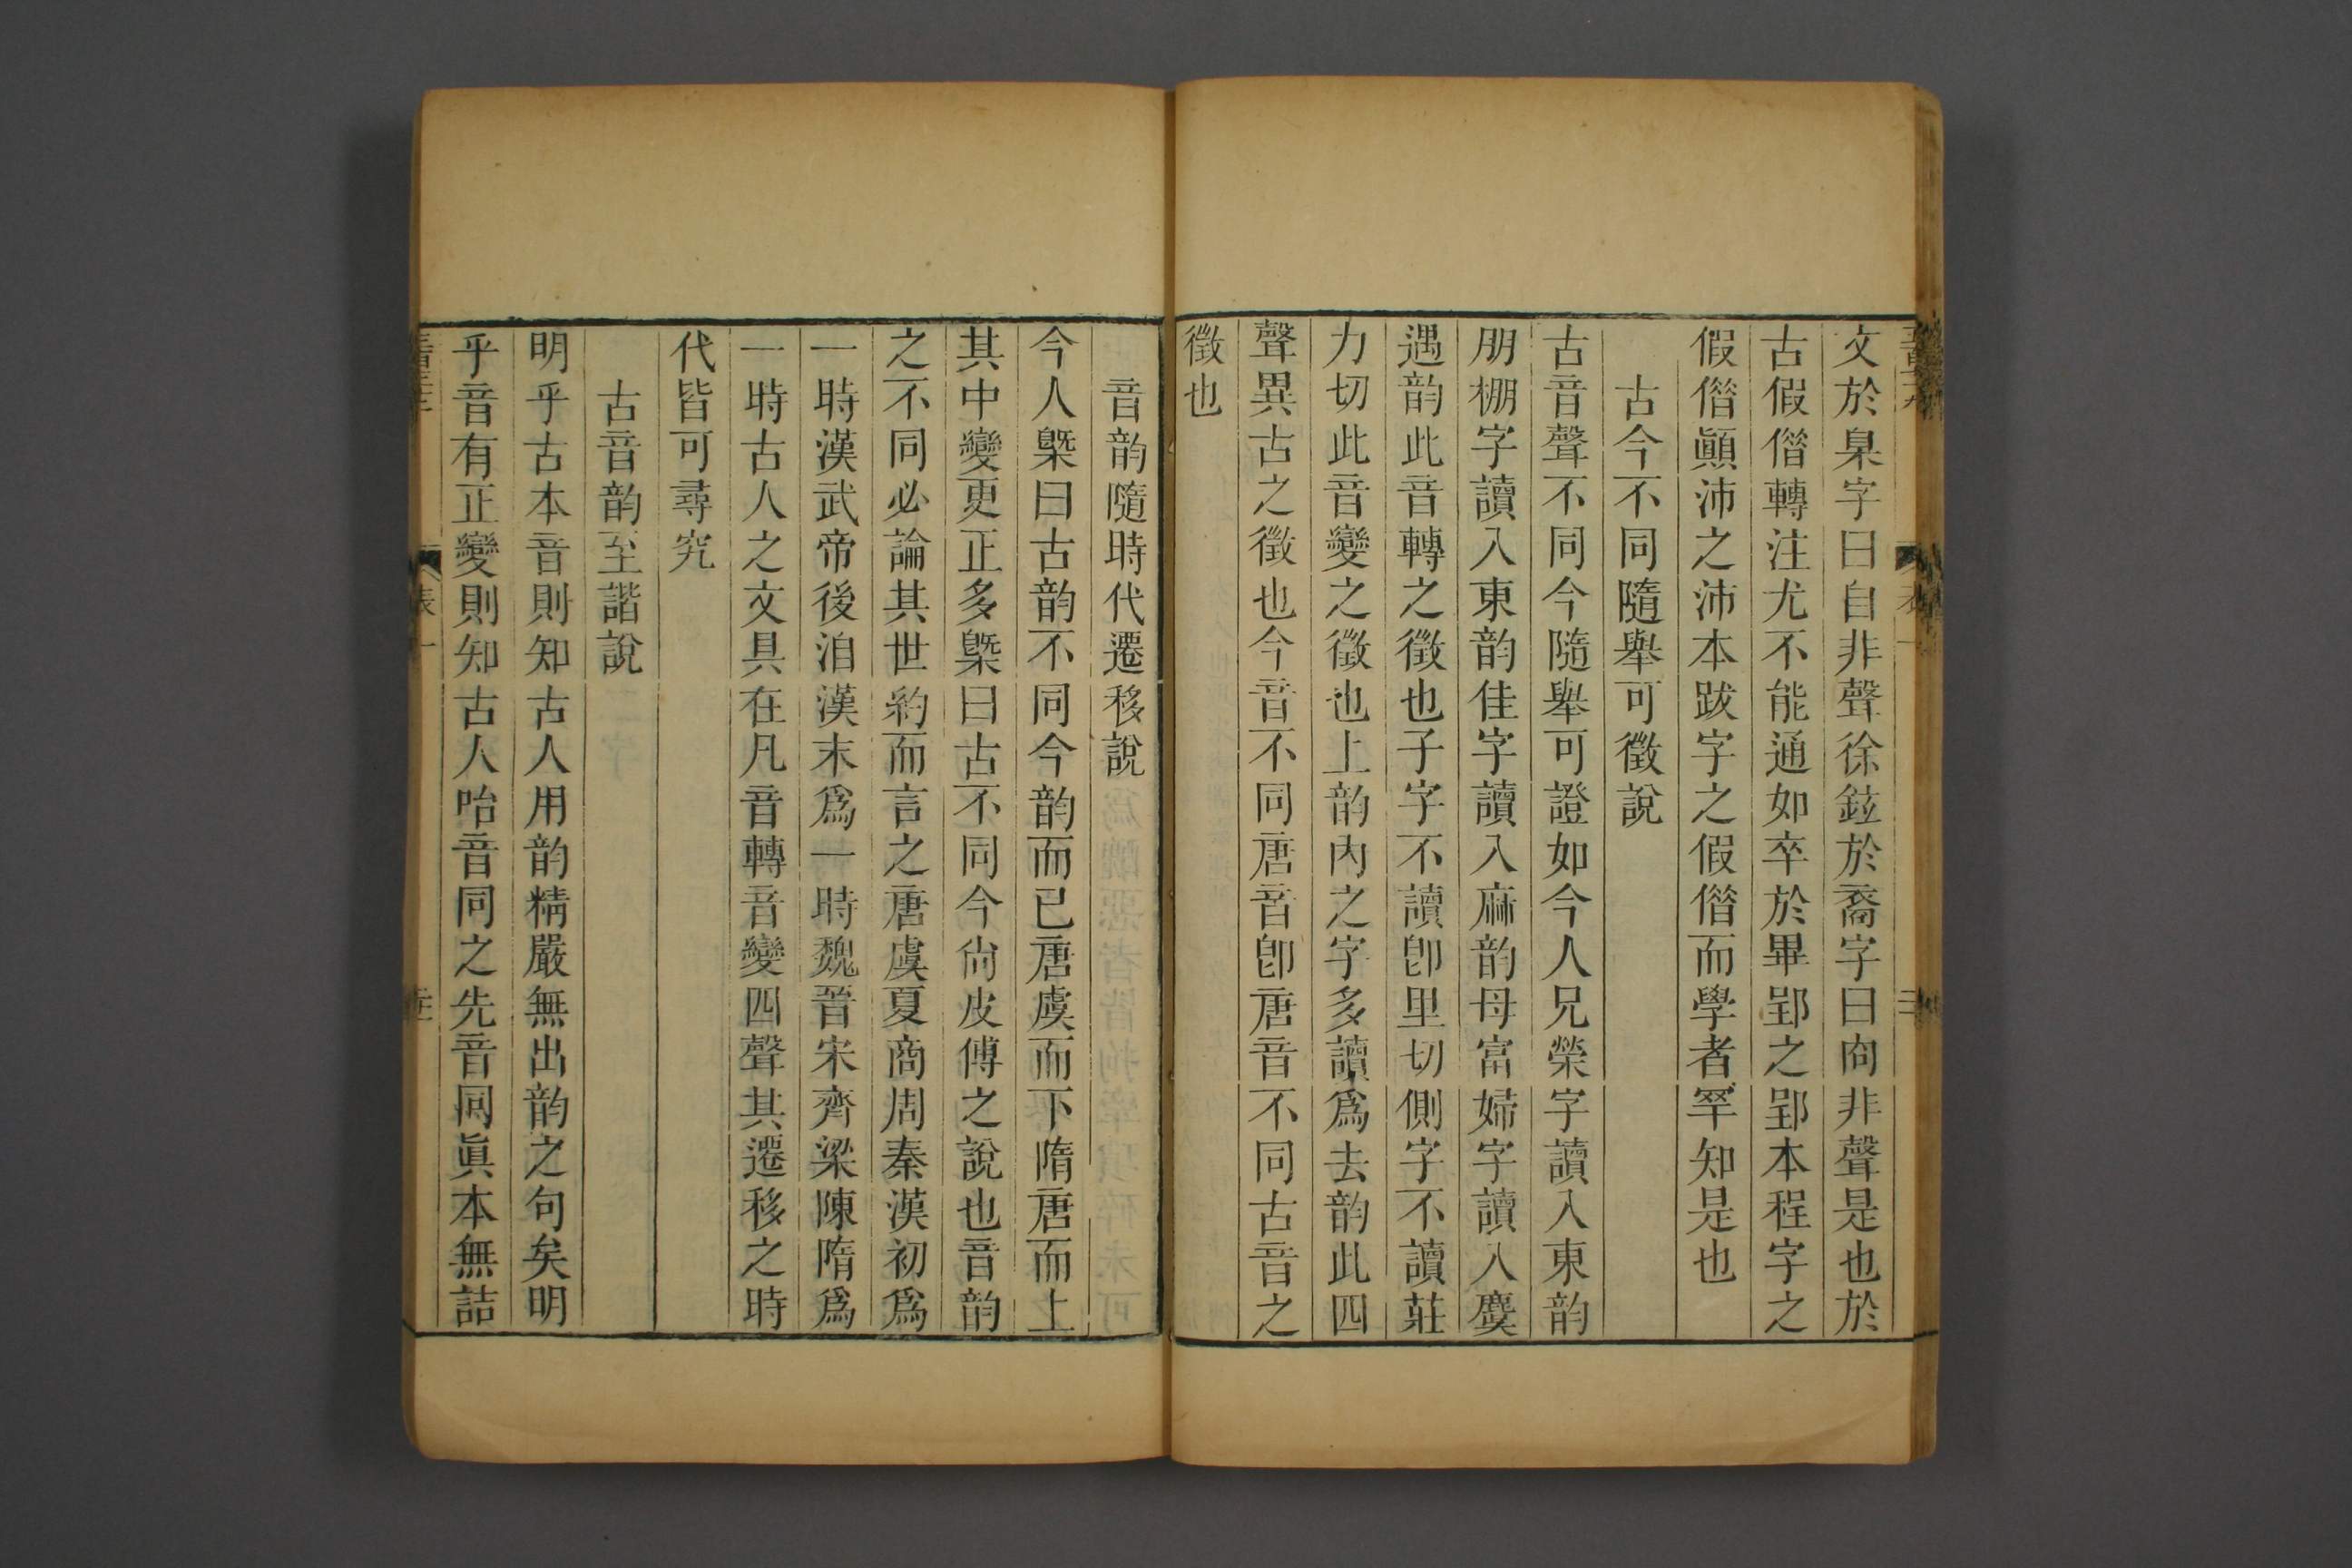 文於臬字曰自非聲徐鉉於裔字曰㕯非聲是也於
古假借轉注尤不能通如卒於畢郢之郢本程字之
假借顚沛之沛本跋字之假借而學者罕知是也
古今不同隨舉可徵說
古音聲不同今隨舉可證如今人兄榮字讀入東韵
朋棚字讀入東韵佳字讀入麻韵母富婦字讀入麌
遇韵此音轉之徵也子字不讀卽里切側字不讀莊
力切此音變之徵也上韵內之字多讀爲去韵此四
聲異古之徵也今音不同唐音卽唐音不同古音之
徵也
音韵隨時代遷移說
今人㮣曰古韵不同今韵而已唐虞而下隋唐而上
其中變更正多㮣曰古不同今尙皮傅之說也音韵
之不同必論其世約而言之唐虞夏商周秦漢初爲
一時漢武帝後洎漢末爲一時魏晉宋齊梁陳隋爲
一時古人之文具在凡音轉音變四聲其遷移之時
代皆可尋究
古音韵至諧說
明乎古本音則知古人用韵精嚴無出韵之句矣明
乎音有正變則知古人咍音同之先音同眞本無詰